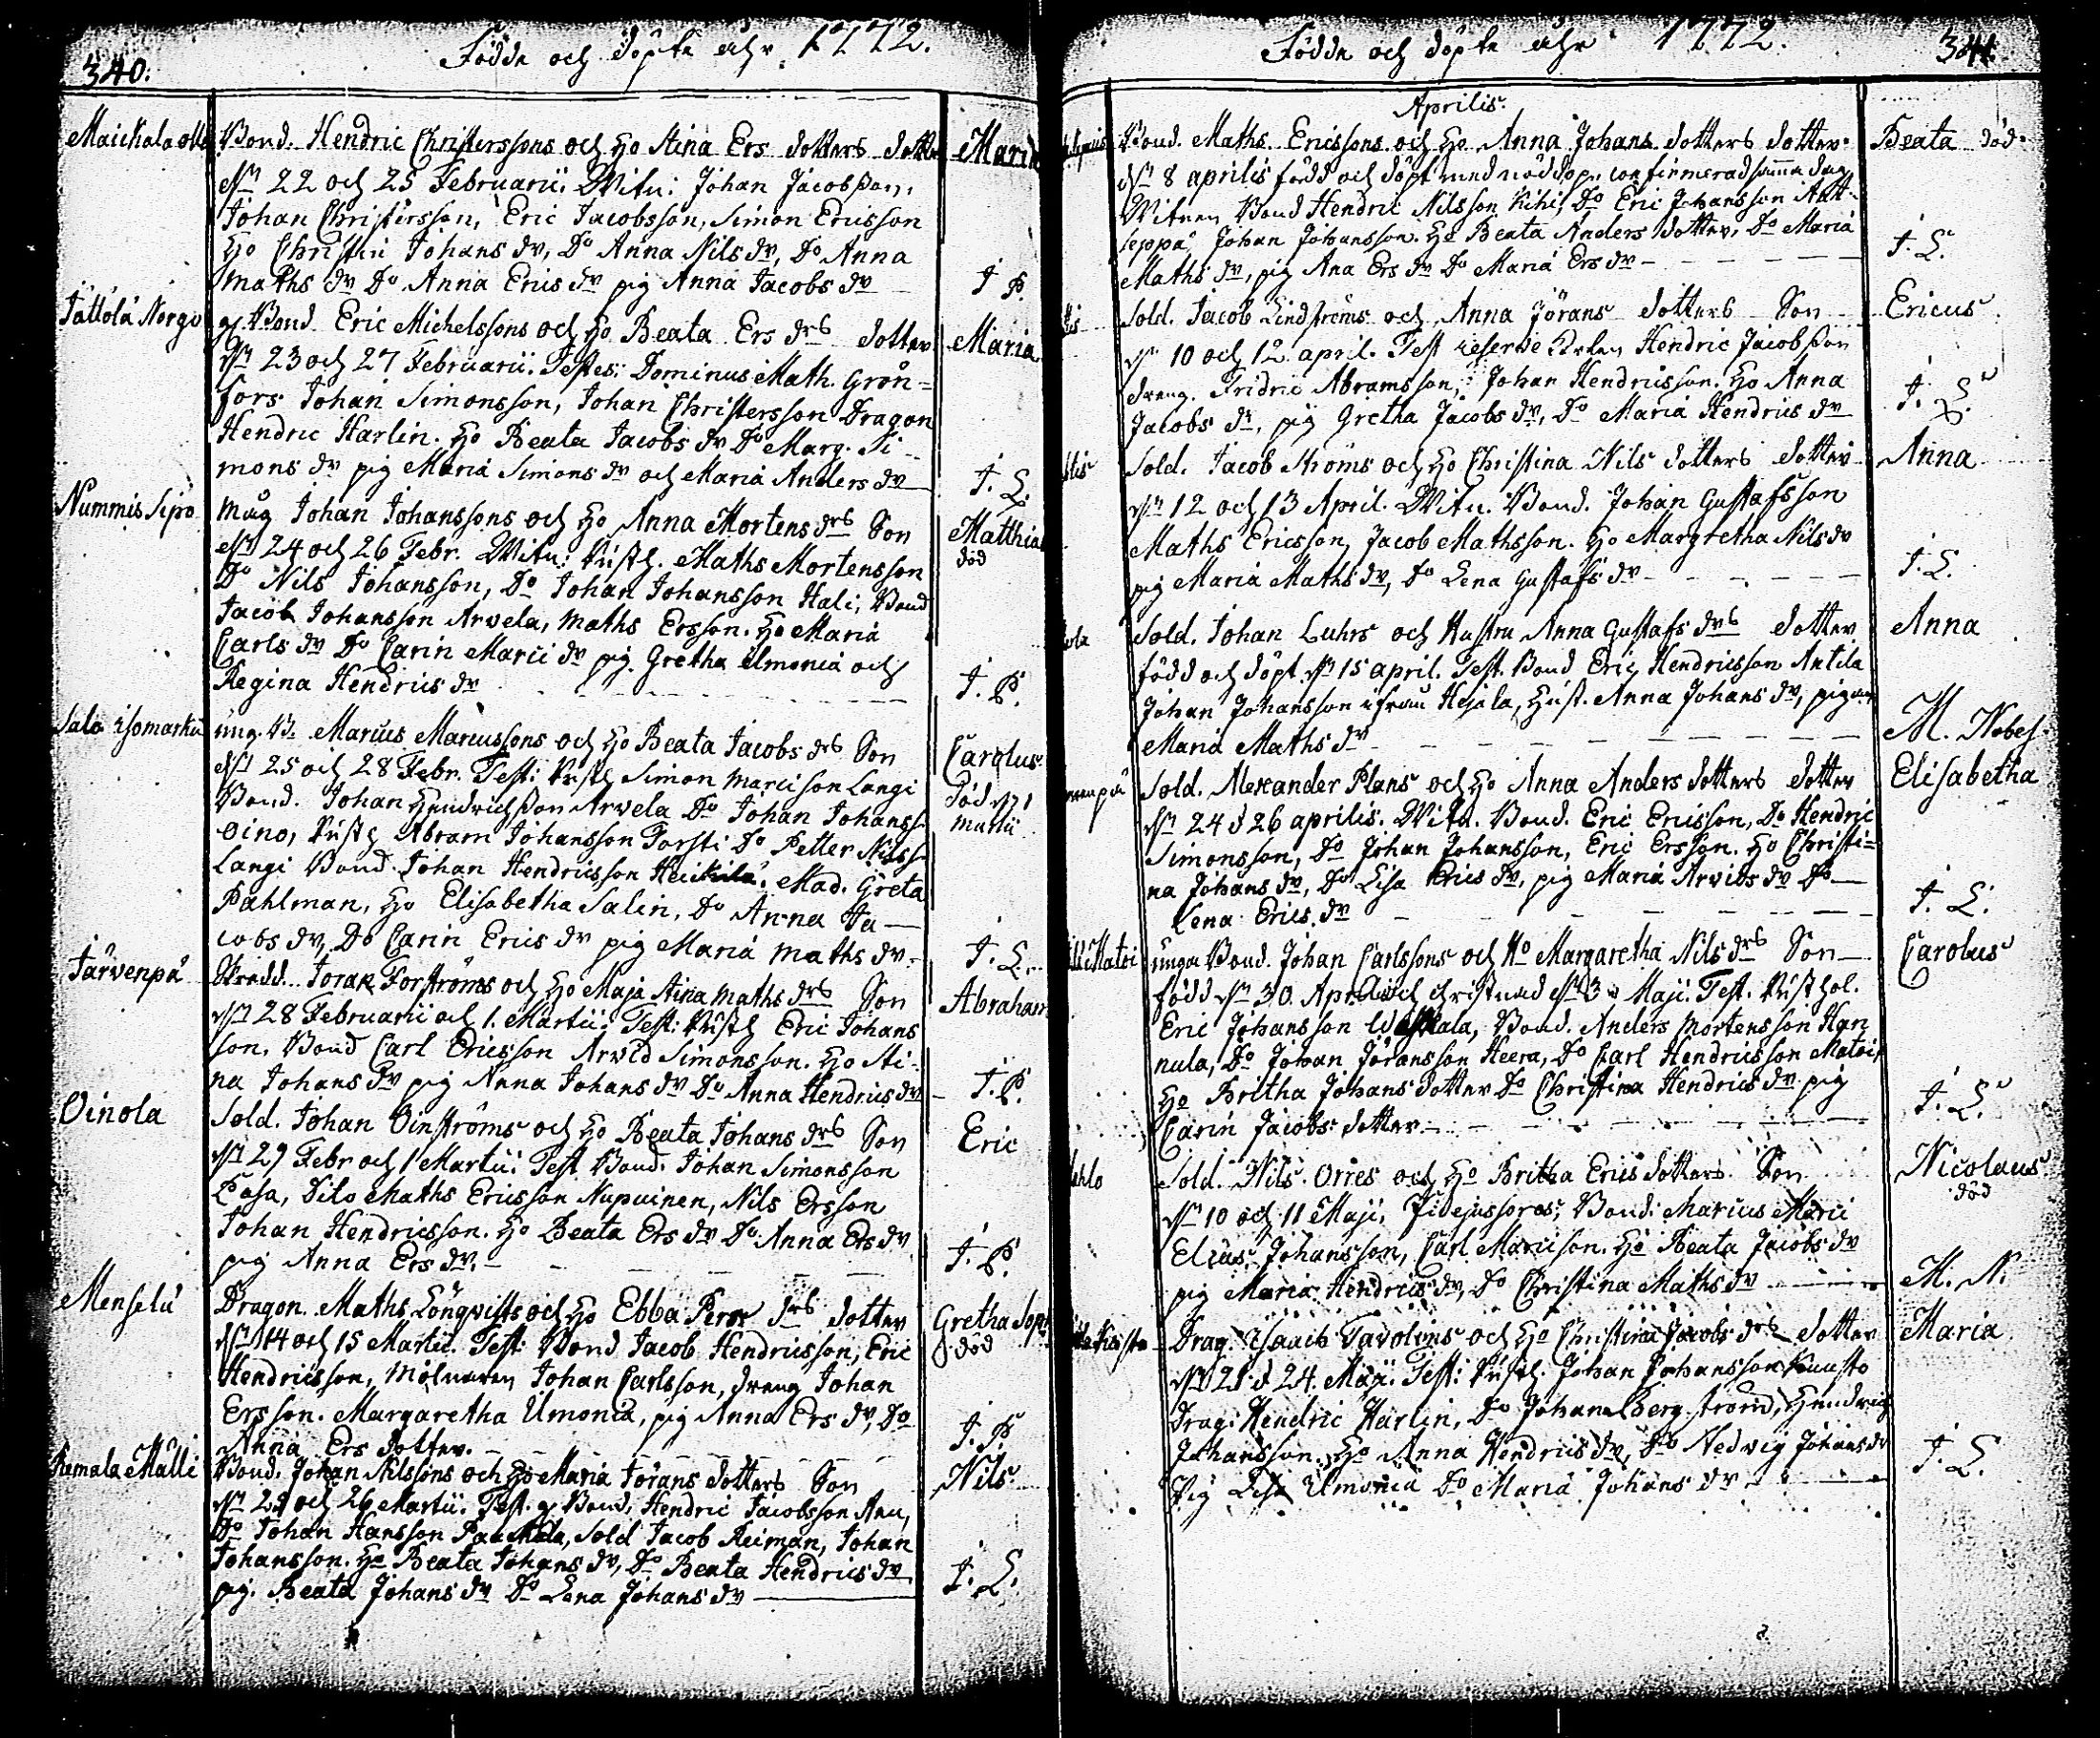 340.
Födde och döpte åhr 1772.
Maickala otto
Bond. Hendric Christerssons och Ho Stina Ers dotters dotter Maria
dn 22 och 25 Februarii. Witn: Johan Jacobsson,
Johan Christersson, Eric Jacobsson, Simon Ericsson
Ho Christin Johans dr, Do Anna Nils dr, Do Anna
Maths dr Do Anna Erics dr pig Anna Jacobs dr
J. P.
Tattola Norgo
Bond Eric Michelssons och Ho Beata Ers drs dotter Maria
dn 23 och 27 Februarii. Testes: Dominus Math. Grön=
fors Johan Simonsson, Johan Christersson Dragon
Hendric Harlin. Ho Beata Jacobs dr Do Marg. Si-
mons dr pig Maria Simons dr och Maria Anders dr
J. L.
Nummis Sipo
Måg Johan Johanssons och Ho Anna Mortens drs Son Matthias
död
dn 24 och 26 Febr. Witn: Rusth. Maths Mortensson
Do Nils Johansson, Do Johan Johansson Hali, Bond
Jacob Johansson Arvela, Maths Ersson. Ho Maria
Carls dr Do Carin Marci dr pig. Gretha Ulmonia och
Regina Hendrics dr
J. P.
Salo isomarku
ung. B. Marcus Marcussons och Ho Beata Jacobs drs Son Carolus
dn 25 och 28 Febr. Test: Rusth Simon Marcison Langi
död
Martii
Bond. Johan Hendrichsson Arvela Do Johan Johanss.
Oino, Rusth Abram Johansson Torsti Do Petter Nilss.
Langi Bond. Johan Hendricsson Heickila. Mad. Greta
Pahlman, Ho Elisabetha Salin, Do Anna Ja-
cobs dr, Do Carin Erics dr pig Maria Maths dr
J. L.
Järvenpä
Skredd. Forströms och Ho Maja Stina Maths drs Son Abraham
dn 28 Februarii och 1. Martii. Test: Rusth Eric Johans
son, Bond Carl Ericsson Arvid Simonsson. Ho Sti-
na Johans dr pig Anna Johans dr Do Anna Hendrics dr
J. P.
Oinola
Sold. Johan Oinströms och Ho Beata Johans drs Son Eric
dn 29 Febr och 1 Martii. Test Bond. Johan Simonsson
Pasa, Dito Maths Ericsson Nupuinen, Nils Ersson
Johan Hendricsson. Ho Beata Ers dr Do Anna Ers dr
pig Anna Ers dr.
J. P.
Menselä
Dragon. Maths Lönqvists och Ho Ebba Pers drs dotter Gretha Soph
död
dn 14 och 15 Martii. Test: Bond Jacob Hendricsson, Eric
Hendricsson, Mölnaren Johan Carlsson, dreng Johan
Ersson. Margaretha Ulmonia, pig Anna Ers dr, Do
Anna Ers dotter.
J. P.
Remala Mälli
Bond. Johan Nilssons och Ho Maria Jörans dotters Son Nils
dn 25 och 26 Martii. Test. Bond. Hendric Jacobsson
Do Johan Hansson, Sold Jacob Reiman, Johan
Johansson. Ho Beata Johans dr, Do Beata Hendrics dr
pig. Beata Johans dr Do Lena Johans dr
J. L.
Födde och döpte åhr 1772.
341.
Aprilis.
Bond. Maths Ericssons och Ho Anna Johans dotters dotter Beata död
dn 8 aprilis född och döpt med nöddop, confirmerad samma dag
Witnen Bond Hendric Nilsson Kihi, Do Eric Johansson Ant-
seppä Johan Johansson. Ho Beata Anders dotter, Do Maria
Maths dr, pig Ana Ers dr Do Maria Ers dr
J. L.
Sold. Jacob Lindströms och Anna Jörans dotters Son Ericus
dn 10 och 12 april. Test reserve Karlen Hendric Jacobsson
dreng. Fridric Abramsson, Johan Hendricsson. Ho Anna
Jacobs dr, pig Gretha Jacobs dr, Do Maria Hendrics dr
J. L.
Sold. Jacob Ströms och Ho Christina Nils dotters dotter Anna
dn 12 och 13 April. Witn. Bond. Johan Gustafsson
Maths Ericsson, Jacob Mathsson. Ho Margretha Nils dr
pig Maria Maths dr, Do Lena Gustafs dr
J. L.
Sold. Johan Luhrs och Hustru Anna Gustafs drs dotter Anna
född och döpt dn 15 april. Test. Bond Eric Hendricsson Antila
Johan Johansson ifrån Hejala, Hust. Anna Johans dr, pigan
Maria Maths dr
M. Nobel.
Sold. Alexander Plans och Ho Anna Anders dotters dotter Elisabetha
dn 24 d 26 aprilis. Witn. Bond. Eric Ericsson, Do Hendric
Simonsson, Do Johan Johansson, Eric Ersson. Ho Christi=
na Johans dr, Do Lisa Erics dr, pig Maria Arvids dr Do
Lena Erics dr
J. L.
Matoi
unga Bond. Johan Carlssons och Ho Margaretha Nils drs Son Carolus
född dn 30 Aprilis och christnad dn 3 Maji. Test. Rusthol.
Eric Johansson, Bond. Anders Mortensson Han
nula, Do Johan Jöransson Heera, Do Carl Hendricsson Matoi,
Ho Britha Johans dotter Do Christina Hendrics dr pig
Carin Jacobs dotter
J. L.
Sold. Nils Orres och Ho Britha Erics dotters Son Nicolaus
död
dn 10 och 11 Maji. Fidejussores; Bond. Marcus Marci
Elias Johansson, Carl Marcison. Ho Beata Jacobs dr
pig Maria Hendrics dr, Do Christina Maths dr
M. N.
Drag. Isaacs Tavolins och Ho Christina Jacobs drs dotter Maria
dn 21 d 24 Maji. Test: Rusth. Johan Johansson Knusto
Drag. Hendric Harlin, Do Johan Bergström, Hendric
Johansson. Ho Anna Hendrics dr, Do Hedvig Johans dr
Pig Lisa Ulmonia Do Maria Johans dr
J. L.